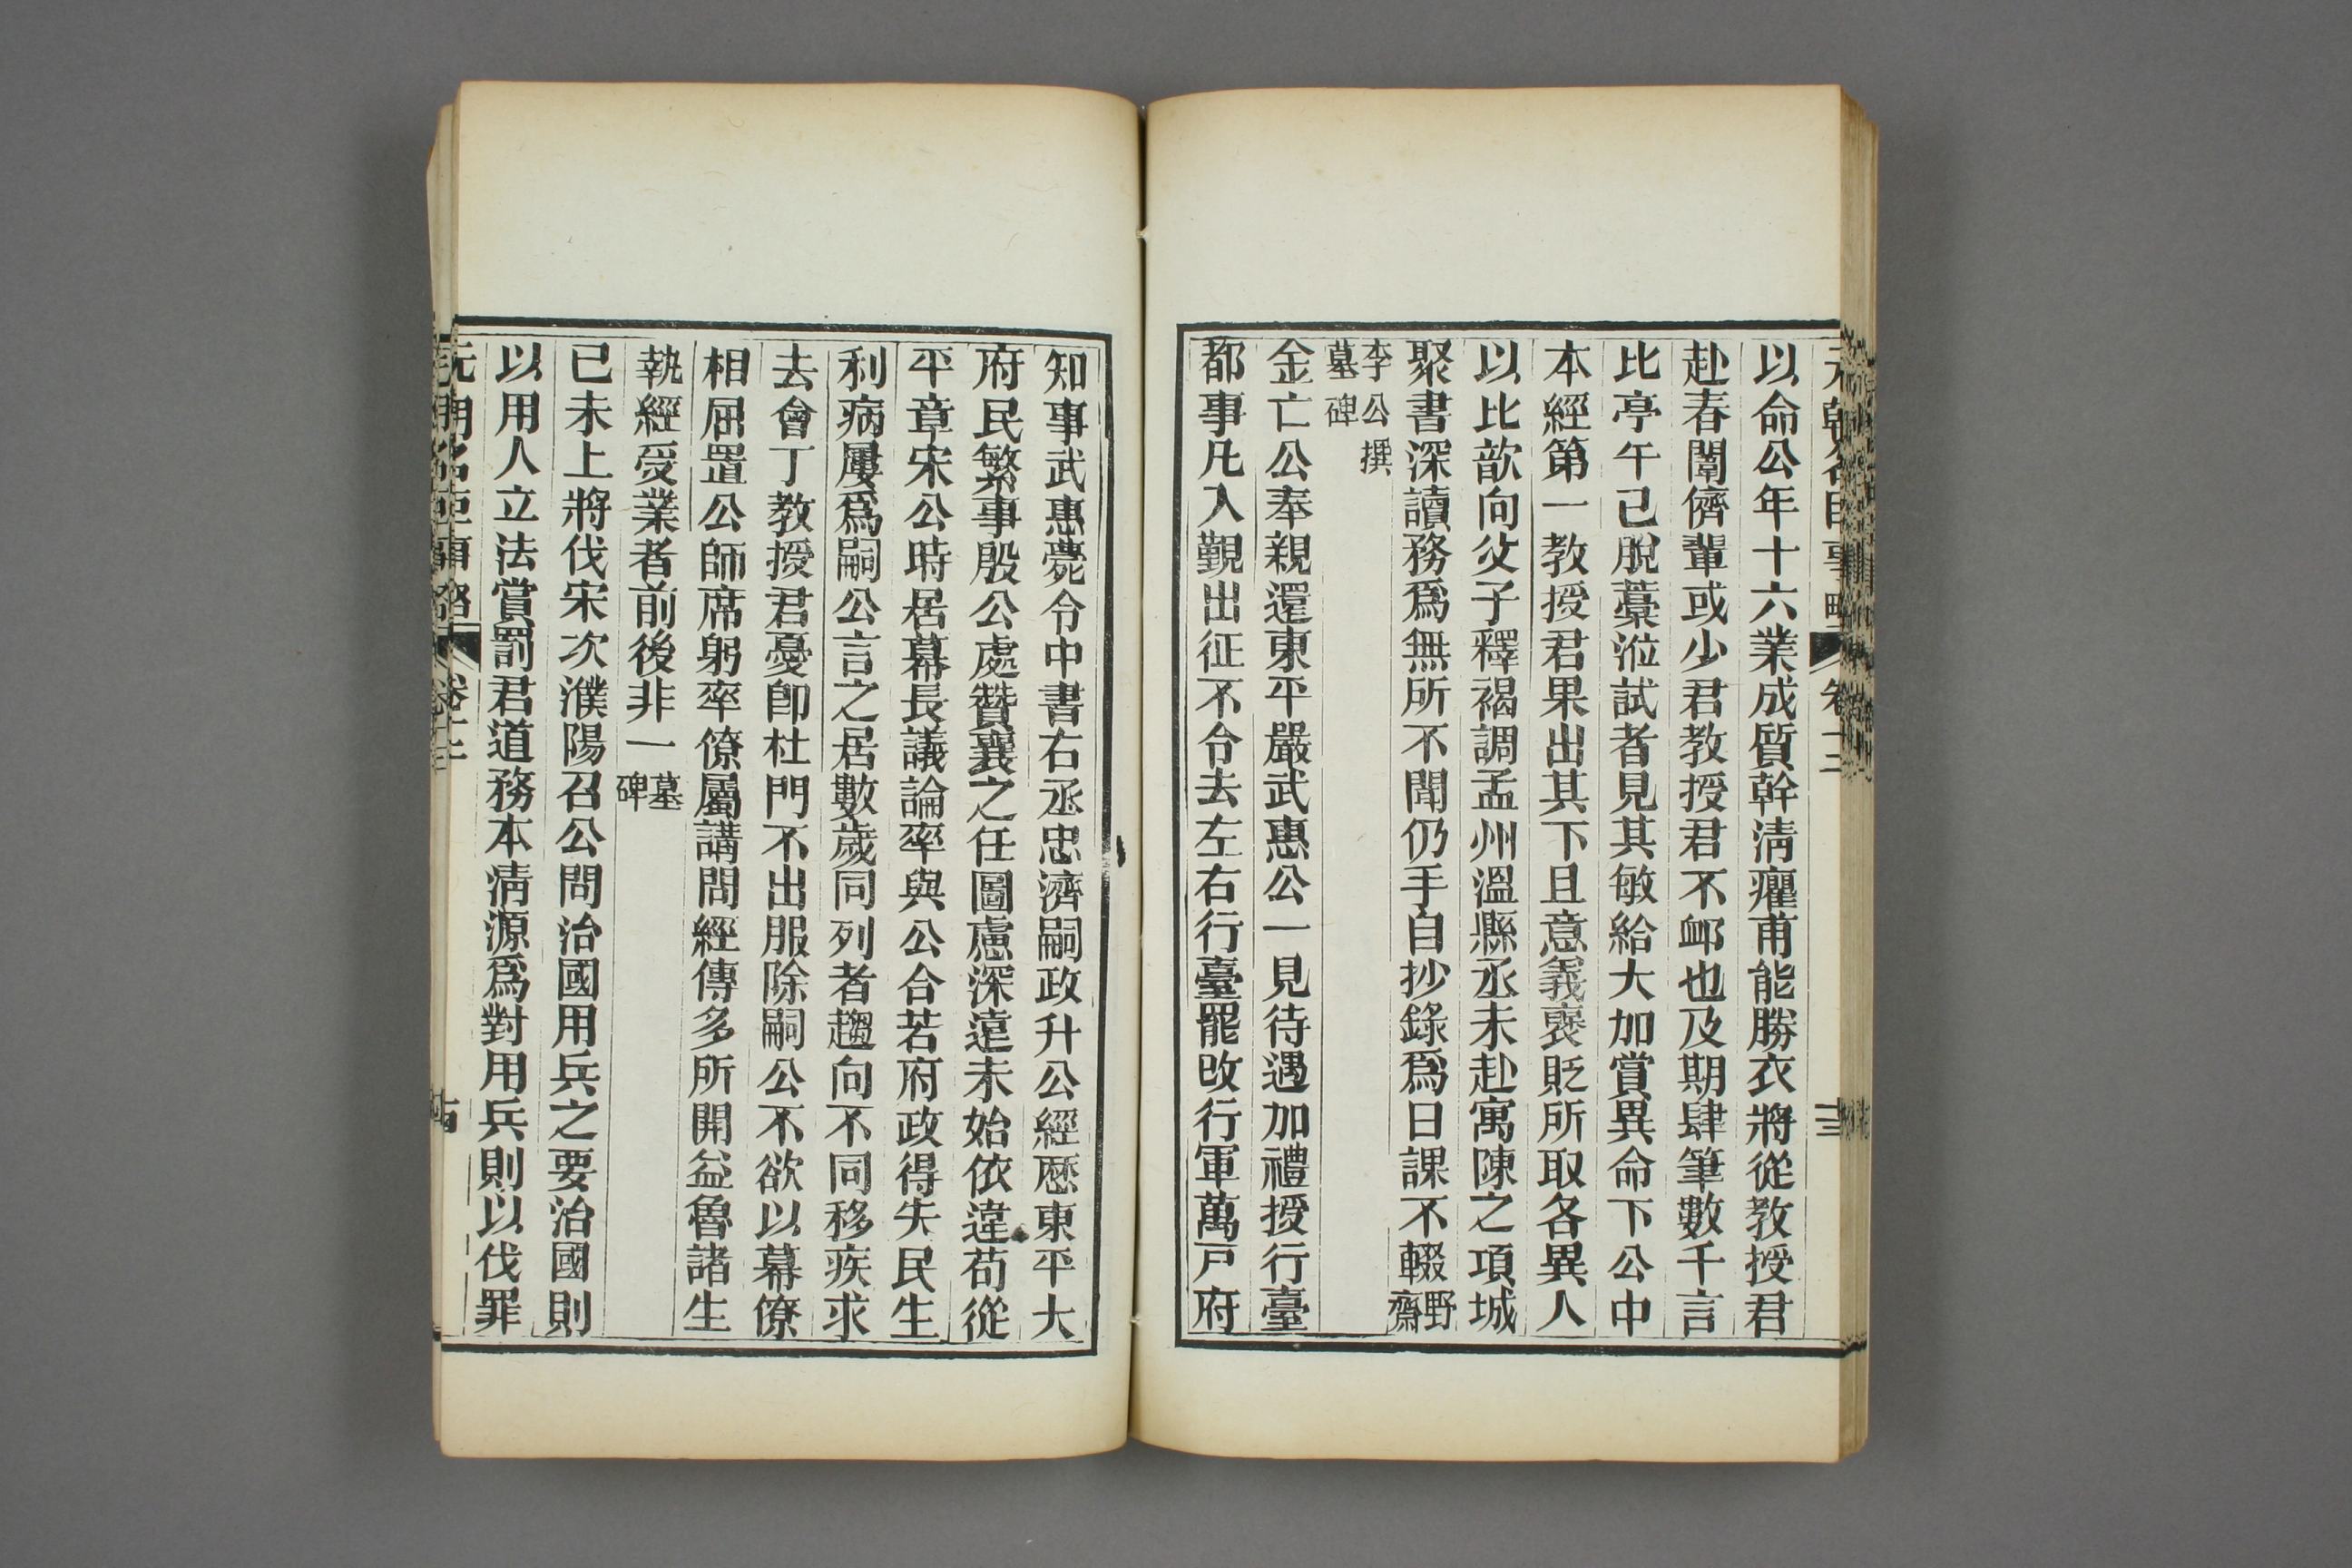 以命公年十六業成質幹清癯甫能勝衣將從教授君
赴春闈儕輩或少君教授君不卹也及期肆筆數千言
比亭午已脫藁涖試者見其敏給大加賞異命下公中
本經第一教授君果出其下且意義襃貶所取各異人
以比歆向父子釋褐調孟州溫縣丞未赴寓陳之項城
聚書深讀務爲無所不聞仍手自抄錄爲日課不輟野齋
李公撰墓碑
金亡公奉親還東平嚴武惠公一見待遇加禮授行臺
都事凡入覲出征不令去左右行臺罷改行軍萬戸府
知事武惠薨令中書右丞忠濟嗣政升公經歷東平大
府民繁事殷公處贊襄之任圖慮深遠未始依違苟從
平章宋公時居幕長議論率與公合若府政得失民生
利病屢爲嗣公言之居數歲同列者趨向不同移疾求
去會丁教授君憂卽杜門不出服除嗣公不欲以幕僚
相屈置公師席躬率僚屬講問經傳多所開益魯諸生
執經受業者前後非一墓碑
己未上將伐宋次濮陽召公問治國用兵之要治國則
以用人立法賞罰君道務本清源爲對用兵則以伐罪